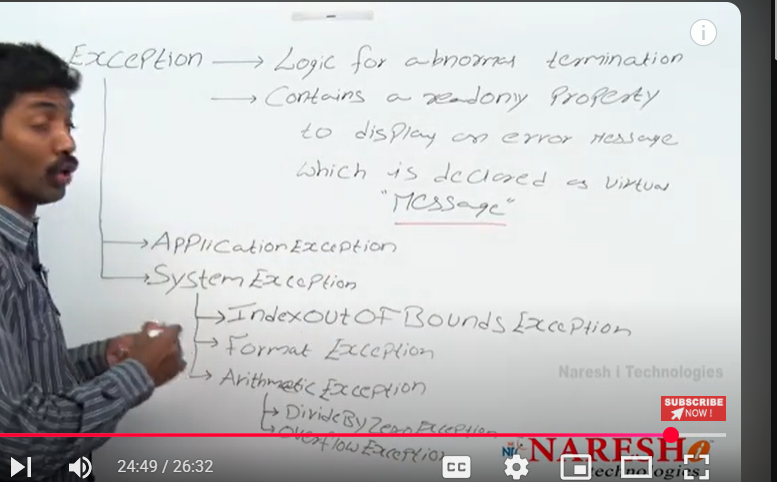 Exception → Logic for abnormal termination
→ Contains a readony Property
to display an error Message
which is declared as virtual
"Message"
→ Application Exception
→ System Exception
→ IndexOutOfBounds Exception
→ Format Exception
→ Arithmetic Exception
→ DivideByZero Exception
→ Overflow Exception
Naresh i Technologies
SUBSCRIBE
NOW !
NARESH i
technologies
24:49 / 26:32
CC